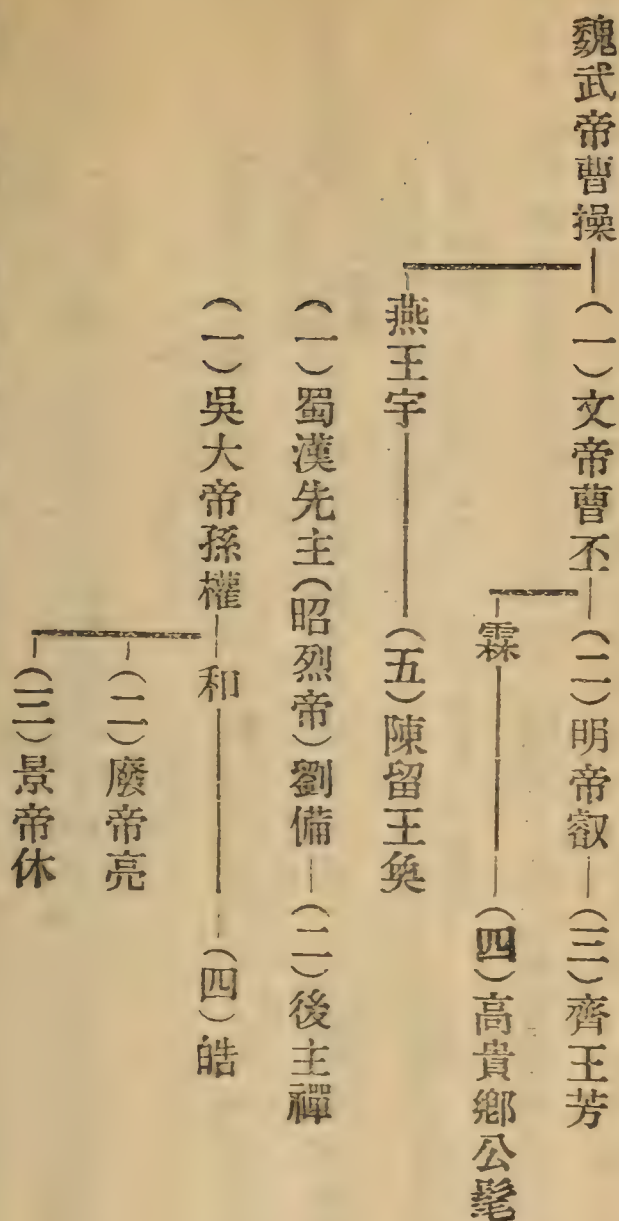 魏武帝曹操
(一)文帝曹丕
(二)明帝叡
(三)齊王芳
霖
(四)高貴鄉公髦
燕王宇
(五)陳留王奐
(一)蜀漢先主(昭烈帝)劉備
(二)後主禪
(一)吳大帝孫權
和
(四)皓
(二)廢帝亮
(三)景帝休